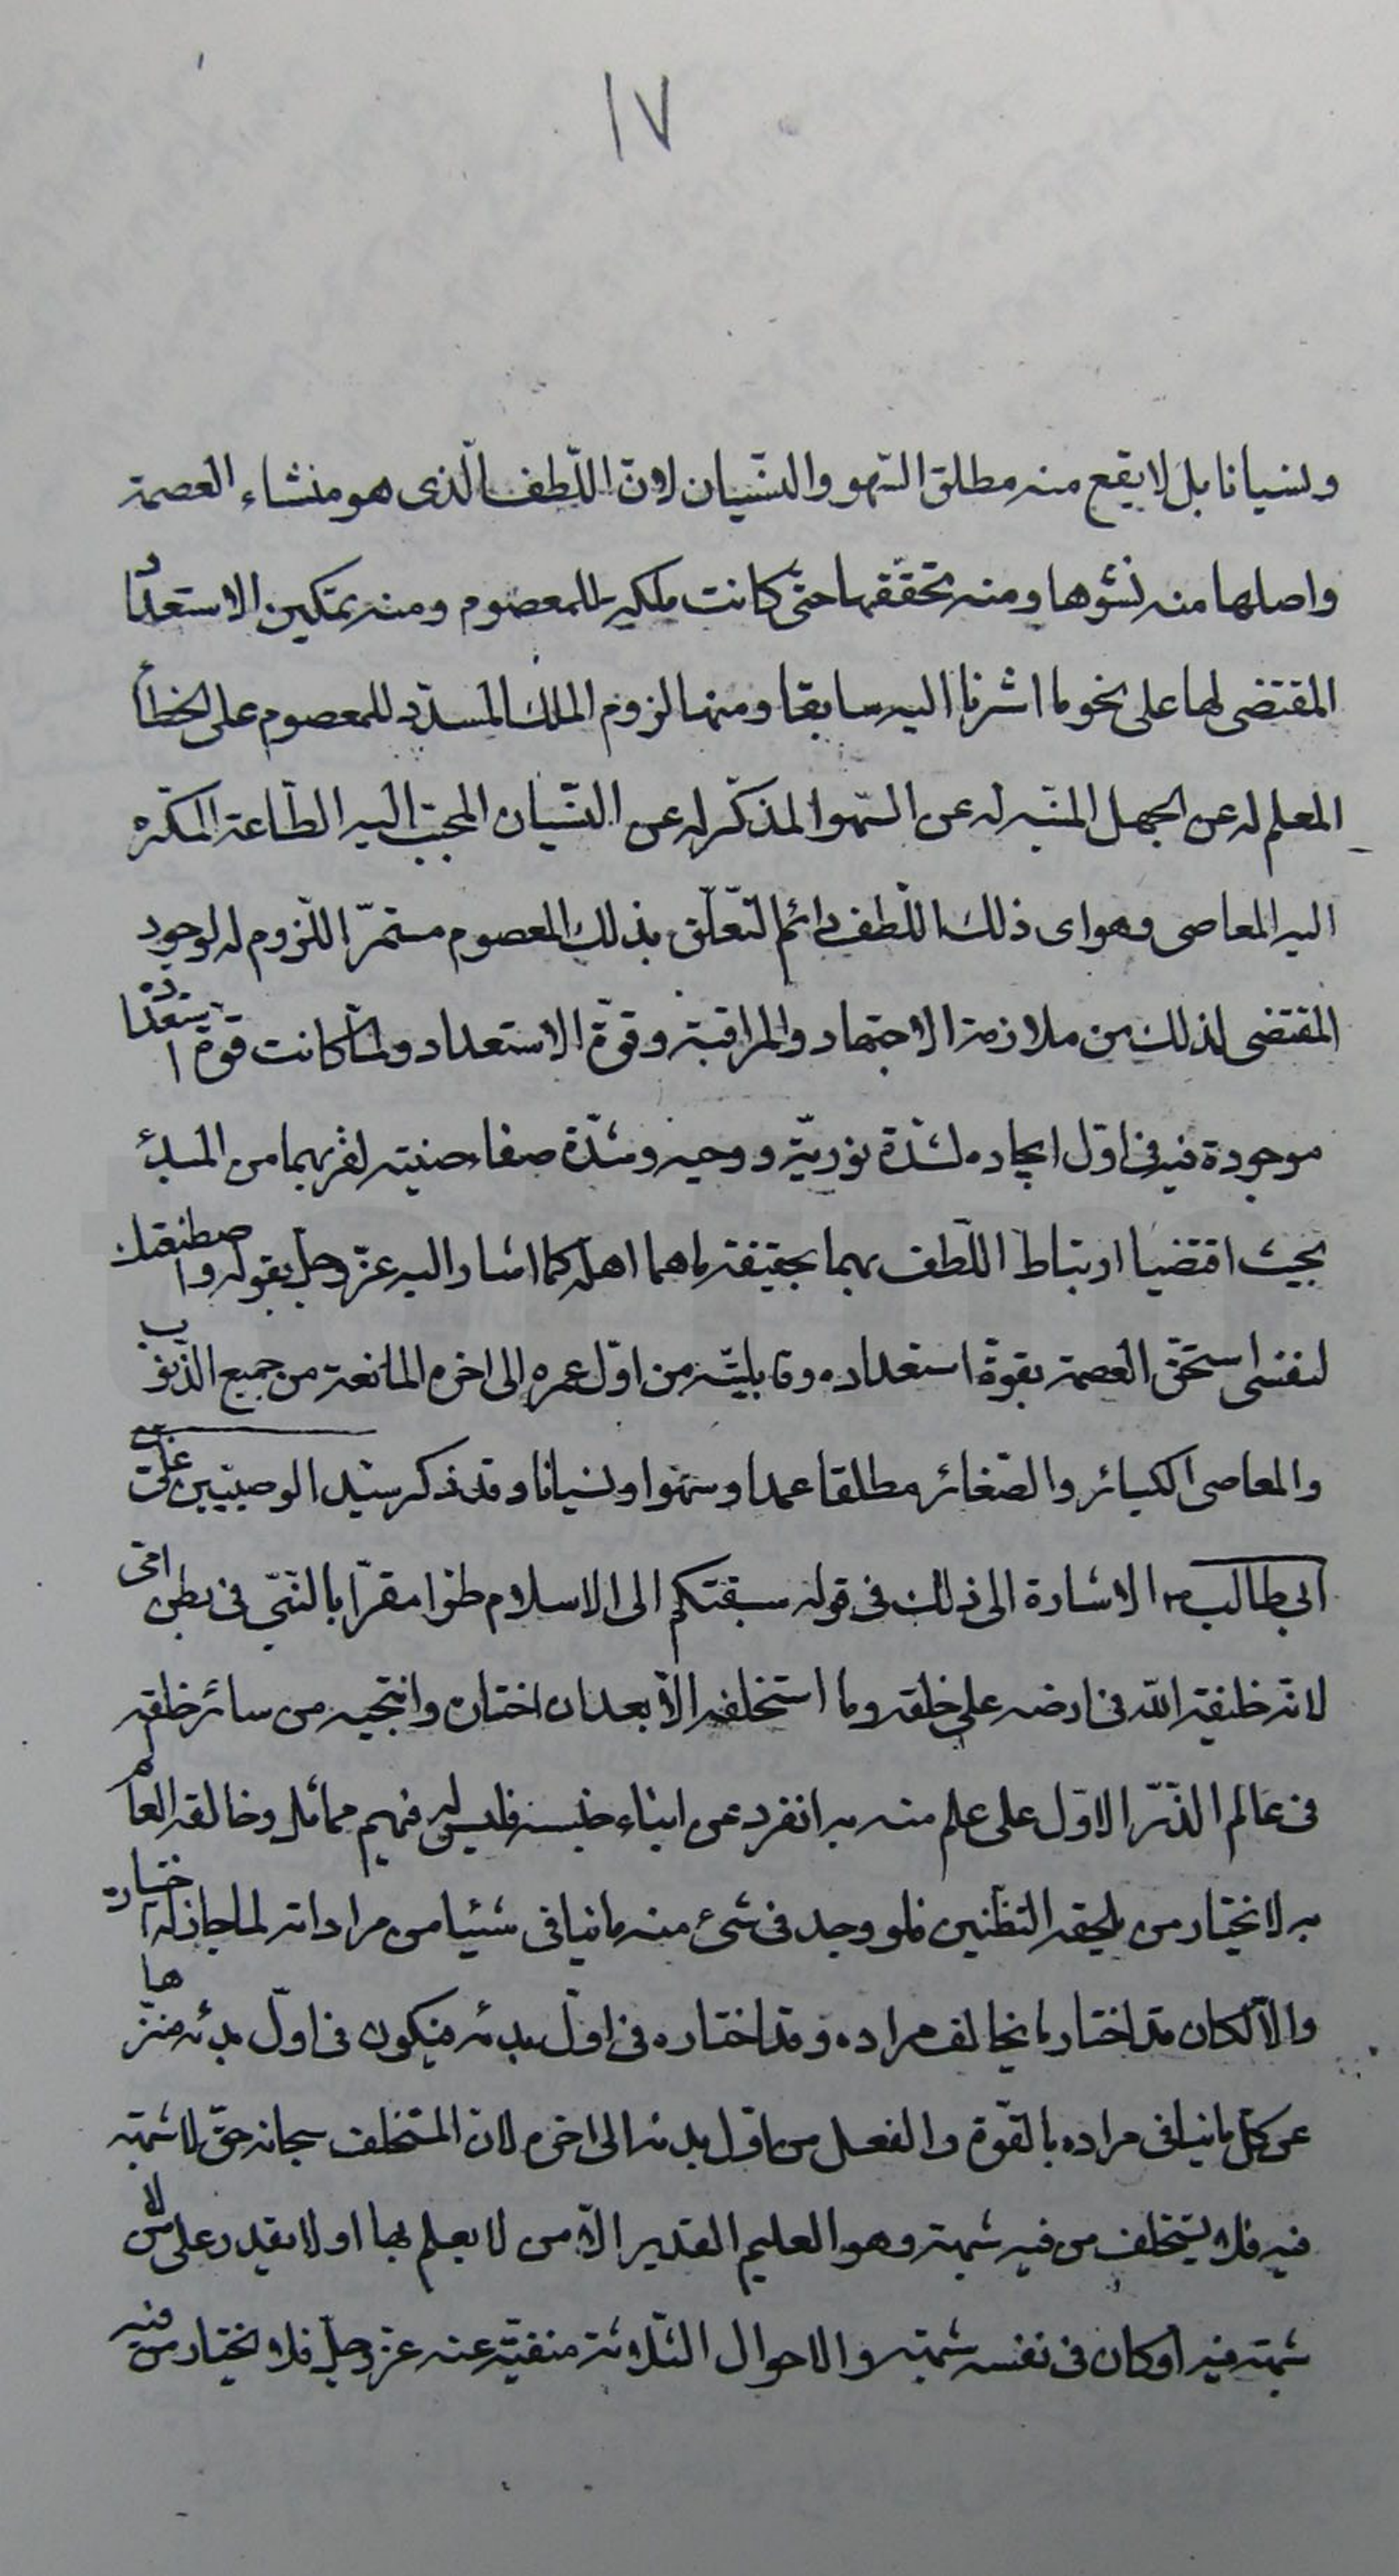 ١٧
ونسيانا بل لا يقع منه مطلق السّهو والنسّيان لانّ اللّطف الّذى هو منشاء العصمة
واصلها منه نشوها ومنه تحققها حتى كانت ملكة للمعصوم ومنه تمكين الاستعداد
المقتضى لها على نحو ما اشرنا اليه سابقا ومنها لزوم الملك المسدّد للمعصوم على الخطأ
المعلم له عن الجهل المنبّه له عن السّهو المذكّر له عن النسّيان المحبّب اليه الطّاعة المكرّه
اليه المعاصى وهو اى ذلك اللّطف دائم التّعلّق بذلك المعصوم مستمرّ اللّزوم له لوجود
المقتضى لذلك من ملازمة الاجتهاد والمراقبة وقوّة الاستعداد ولمّا كانت قوّة استعداده
موجودة فيه فى اوّل ايجاده لشدّة نوريّة روحه وشدّة صفاء طينته لقربهما من المبدء
بحيث اقتضيا ارتباط اللّطف بهما بحقيقة ما هما اهله كما اشار اليه عزّ وجلّ بقوله واصطنعتك
لنفسى استحقّ العصمة بقوة استعداده وقابليّته من اوّل عمره الى اخره المانعة من جميع الذّنوب
والمعاصى الكبائر والصّغائر مطلقا عمدا وسهوا ونسيانا وقد ذكر سيّد الوصيّين علىّ بن
ابى طالب ع الاشارة الى ذلك فى قوله سبقتكم الى الاسلام طرّا مقرّا بالنّبىّ فى بطن امّى
لانّه خليفة اللّه فى ارضه على خلقه وما استخلفه الّا بعد ان اختاره وانتجبه من سائر خلقه
فى عالم الذّرّ الاوّل على علم منه به انفرد عن ابناء جنسه فليس له فيهم مماثل وخالقه العالم
به لا يختار من يلحقه التظنين فلو وجد فى شىء منه ما ينافى شيئا من مراداته لما جاز له اختياره
والّا لكان قد اختار ما يخالف مراده وقد اختاره فى اوّل بدئه فيكون فى اوّل بدئه منزّها
عن كلّ ما ينافى مراده بالقوّة والفعل من اوّل بدئه الى اخره لانّ المستخلف سبحانه حقّ لا شبهة
فيه فلا يستخلف من فيه شبهة وهو العليم القدير الّا من لا يعلم بها او لا يقدر على من لا
شبهة فيه او كان فى نفسه شبهة والاحوال الثّلاثة منفيّة عنه عزّ وجلّ فلا يختار من فيه